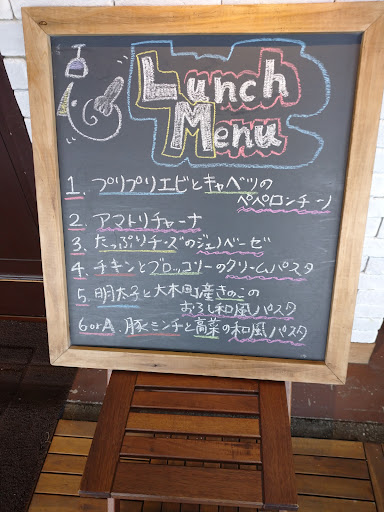 Lunch
Menu
1. プリプリエビとキャベツの
ペペロンチーノ
2. アマトリチャーナ
3. たっぷりチーズのジェノベーゼ
4. チキンとブロッコリーのクリームパスタ
5. 明太子と大木町産きのこの
おろし和風パスタ
6 or A. 豚ミンチと高菜の和風パスタ